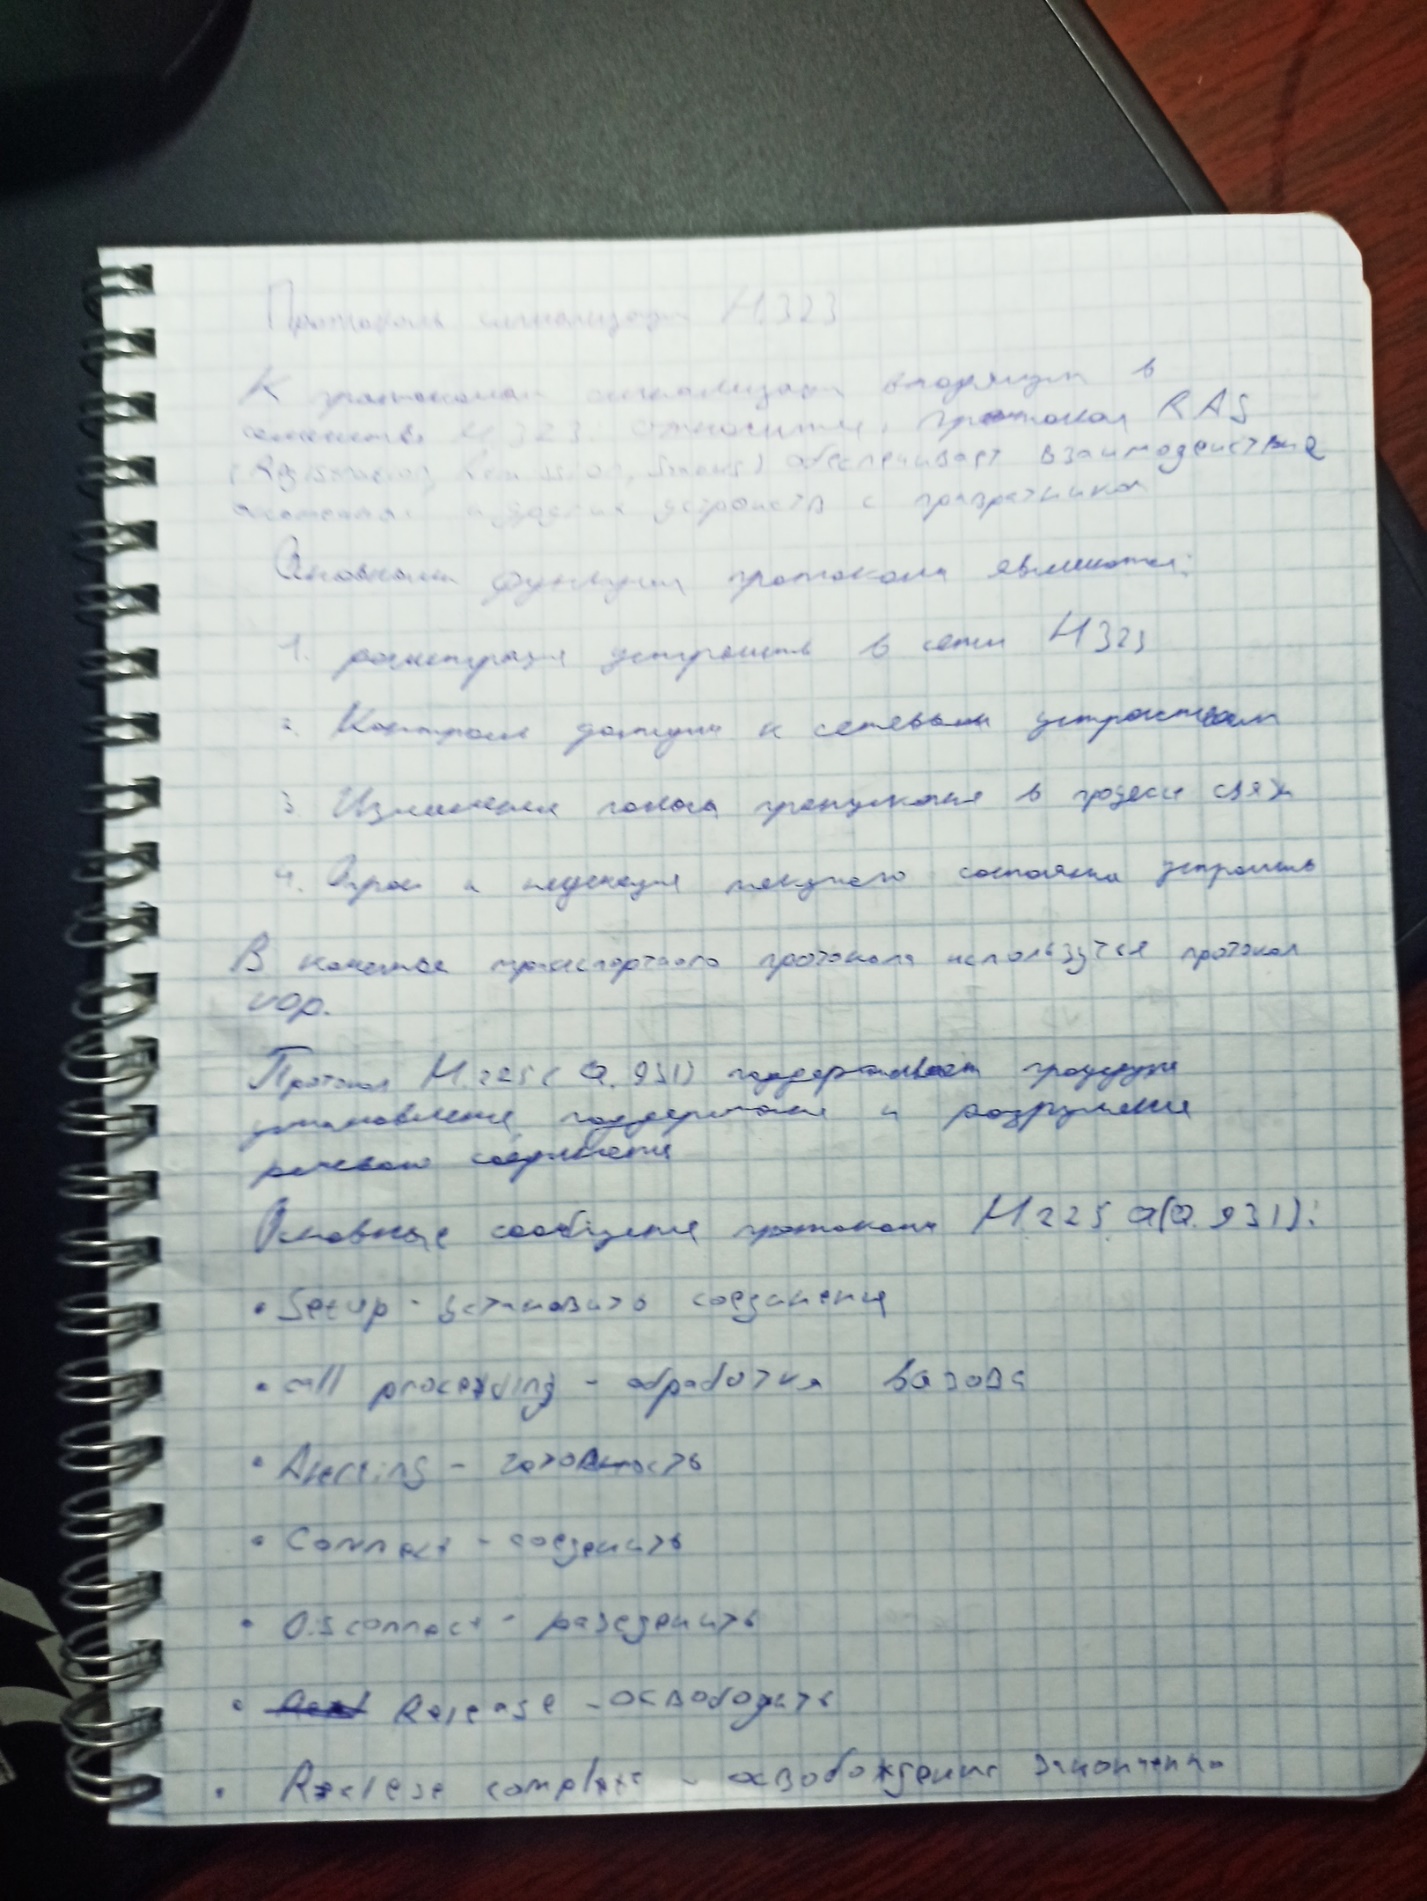 Протоколы сигнализации H.323
К протоколам сигнализации входящим в
семейство H.323 относится, протокол RAS
(Registration, Admission, Status) обеспечивает взаимодействие
устройств с привратником
Основными функции протокола являются:
1. регистрация устройств в сети H323
2. Контроль доступа к сетевым устройствам
3. Изменения полосы пропускания в процессе связи
4. Опрос и индекация текущего состояния устройств
В качестве транспортного протокола используется протокол
UDP.
Протокол H.225 (Q.931) поддерживает процедуры
установления поддержания и разрушения
речевого соединения
Основные сообщения протокола H225 Q(Q.931):
• Setup - установить соединение
• call proceeding - обработка вазова
• Alerting - готовность
• Connect - соеденить
• Disconnect - разеденить
• Release - освободить
• Relese complete - освобождение закончено